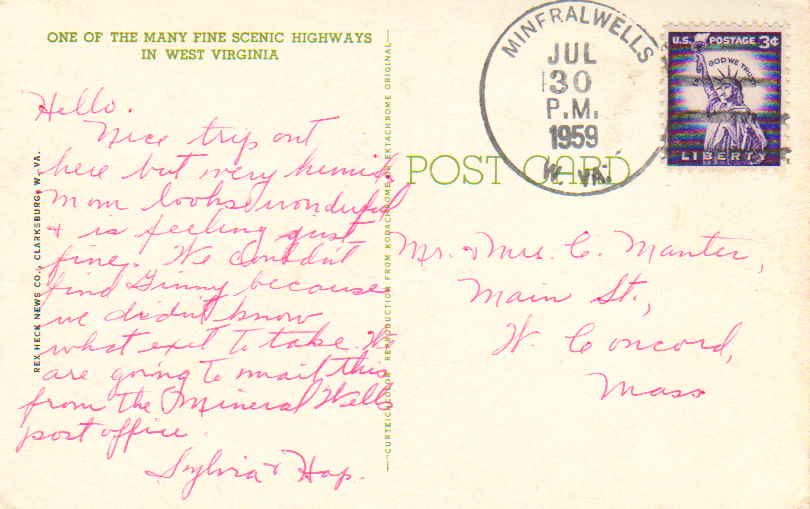 ONE OF THE MANY FINE SCENIC HIGHWAYS
IN WEST VIRGINIA
Hello.
Nice trip out
here but very humid.
Mom looks wonderful
& is feeling just
fine. We couldn't
find Ginny because
we didn't know
what exit to take. We
are going to mail this
from the Mineral Wells
post office.
Sylvia & Hap.
REX HECK NEWS CO., CLARKSBURG, W. VA.
"CURTEICHCOLOR" REPRODUCTION FROM KODACHROME OR EKTACHROME ORIGINAL
POST CARD
MINERALWELLS
JUL
30
P.M.
1959
W. VA.
U.S. POSTAGE 3¢
IN GOD WE TRUST
LIBERTY
Mr. & Mrs. C. Manter,
Main St.,
W. Concord,
Mass